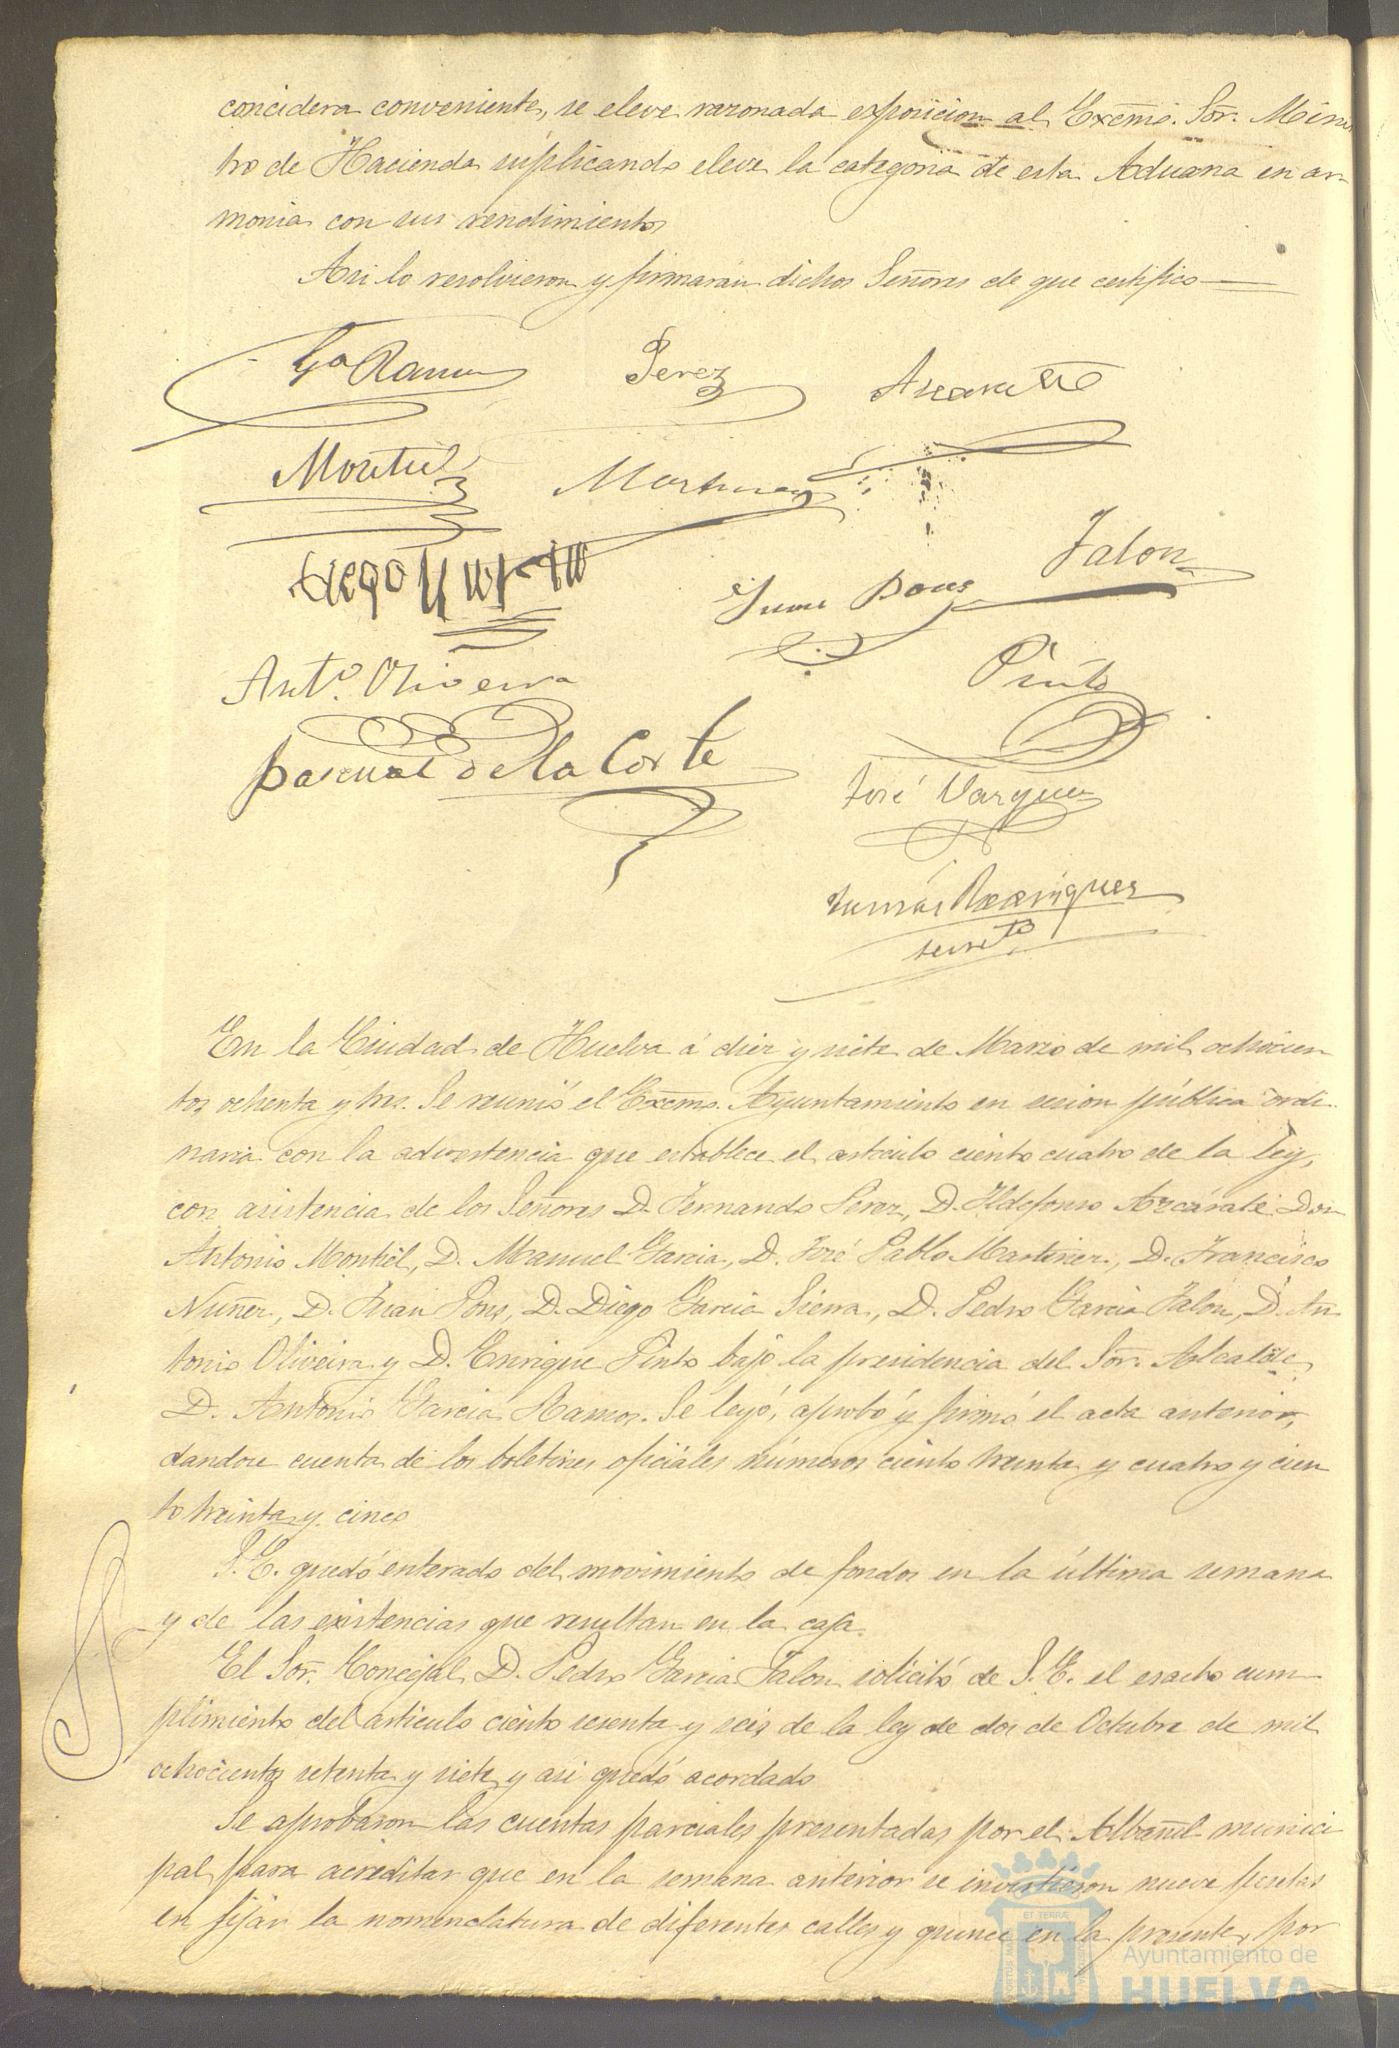 concidera conveniente, se eleve razonada exposicion al Excmo. Sor. Minis
tro de Hacienda suplicando eleve la categoria de esta Aduana en ar-
monia con sus rendimientos
Asi lo resolvieron y firmaran dichos Señores de que certifico
Ga Ramos
Perez
Azcarate
Montiel
Martinez
Jalon
Diego
Juan Pons
Anto. Oliveira
Pinto
Pascual de la Corte
José Vazquez
Tomás Rodriguez
secreto
En la Ciudad de Huelva á diez y siete de Marzo de mil ochocien
tos ochenta y tres. Se reunió el Excmo. Ayuntamiento en sesion pública ordi
naria con la advertencia que establece el articulo ciento cuatro de la ley,
con asistencia de los Señores D. Fernando Perez, D. Ildefonso Azcárate Don
Antonio Montiel, D. Manuel Garcia, D. José Pablo Martinez, D. Francisco
Nuñez, D. Juan Pons, D. Diego Garcia Sierra, D. Pedro Garcia Jalon, D. An
tonio Oliveira y D. Enrique Pinto bajo la presidencia del Sor. Alcalde
D. Antonio Garcia Ramos. Se leyó, aprobó y firmó el acta anterior,
dandose cuenta de los boletines oficiales números ciento treinta y cuatro y cien
to treinta y cinco
S. E. quedó enterado del movimiento de fondos en la última semana
y de las existencias que resultan en la caja.
El Sor. Concejal D. Pedro Garcia Jalon solicitó de S. E. el esacto cum-
plimiento del articulo ciento sesenta y seis de la ley de dos de Octubre de mil
ochocientos setenta y siete y asi quedó acordado
Se aprobaron las cuentas parciales presentadas por el Albañil munici
pal para acreditar que en la semana anterior se invirtieron nueve pesetas
en fijar la nomenclatura de diferentes calles y quince en la presente, por
Ayuntamiento de
HUELVA